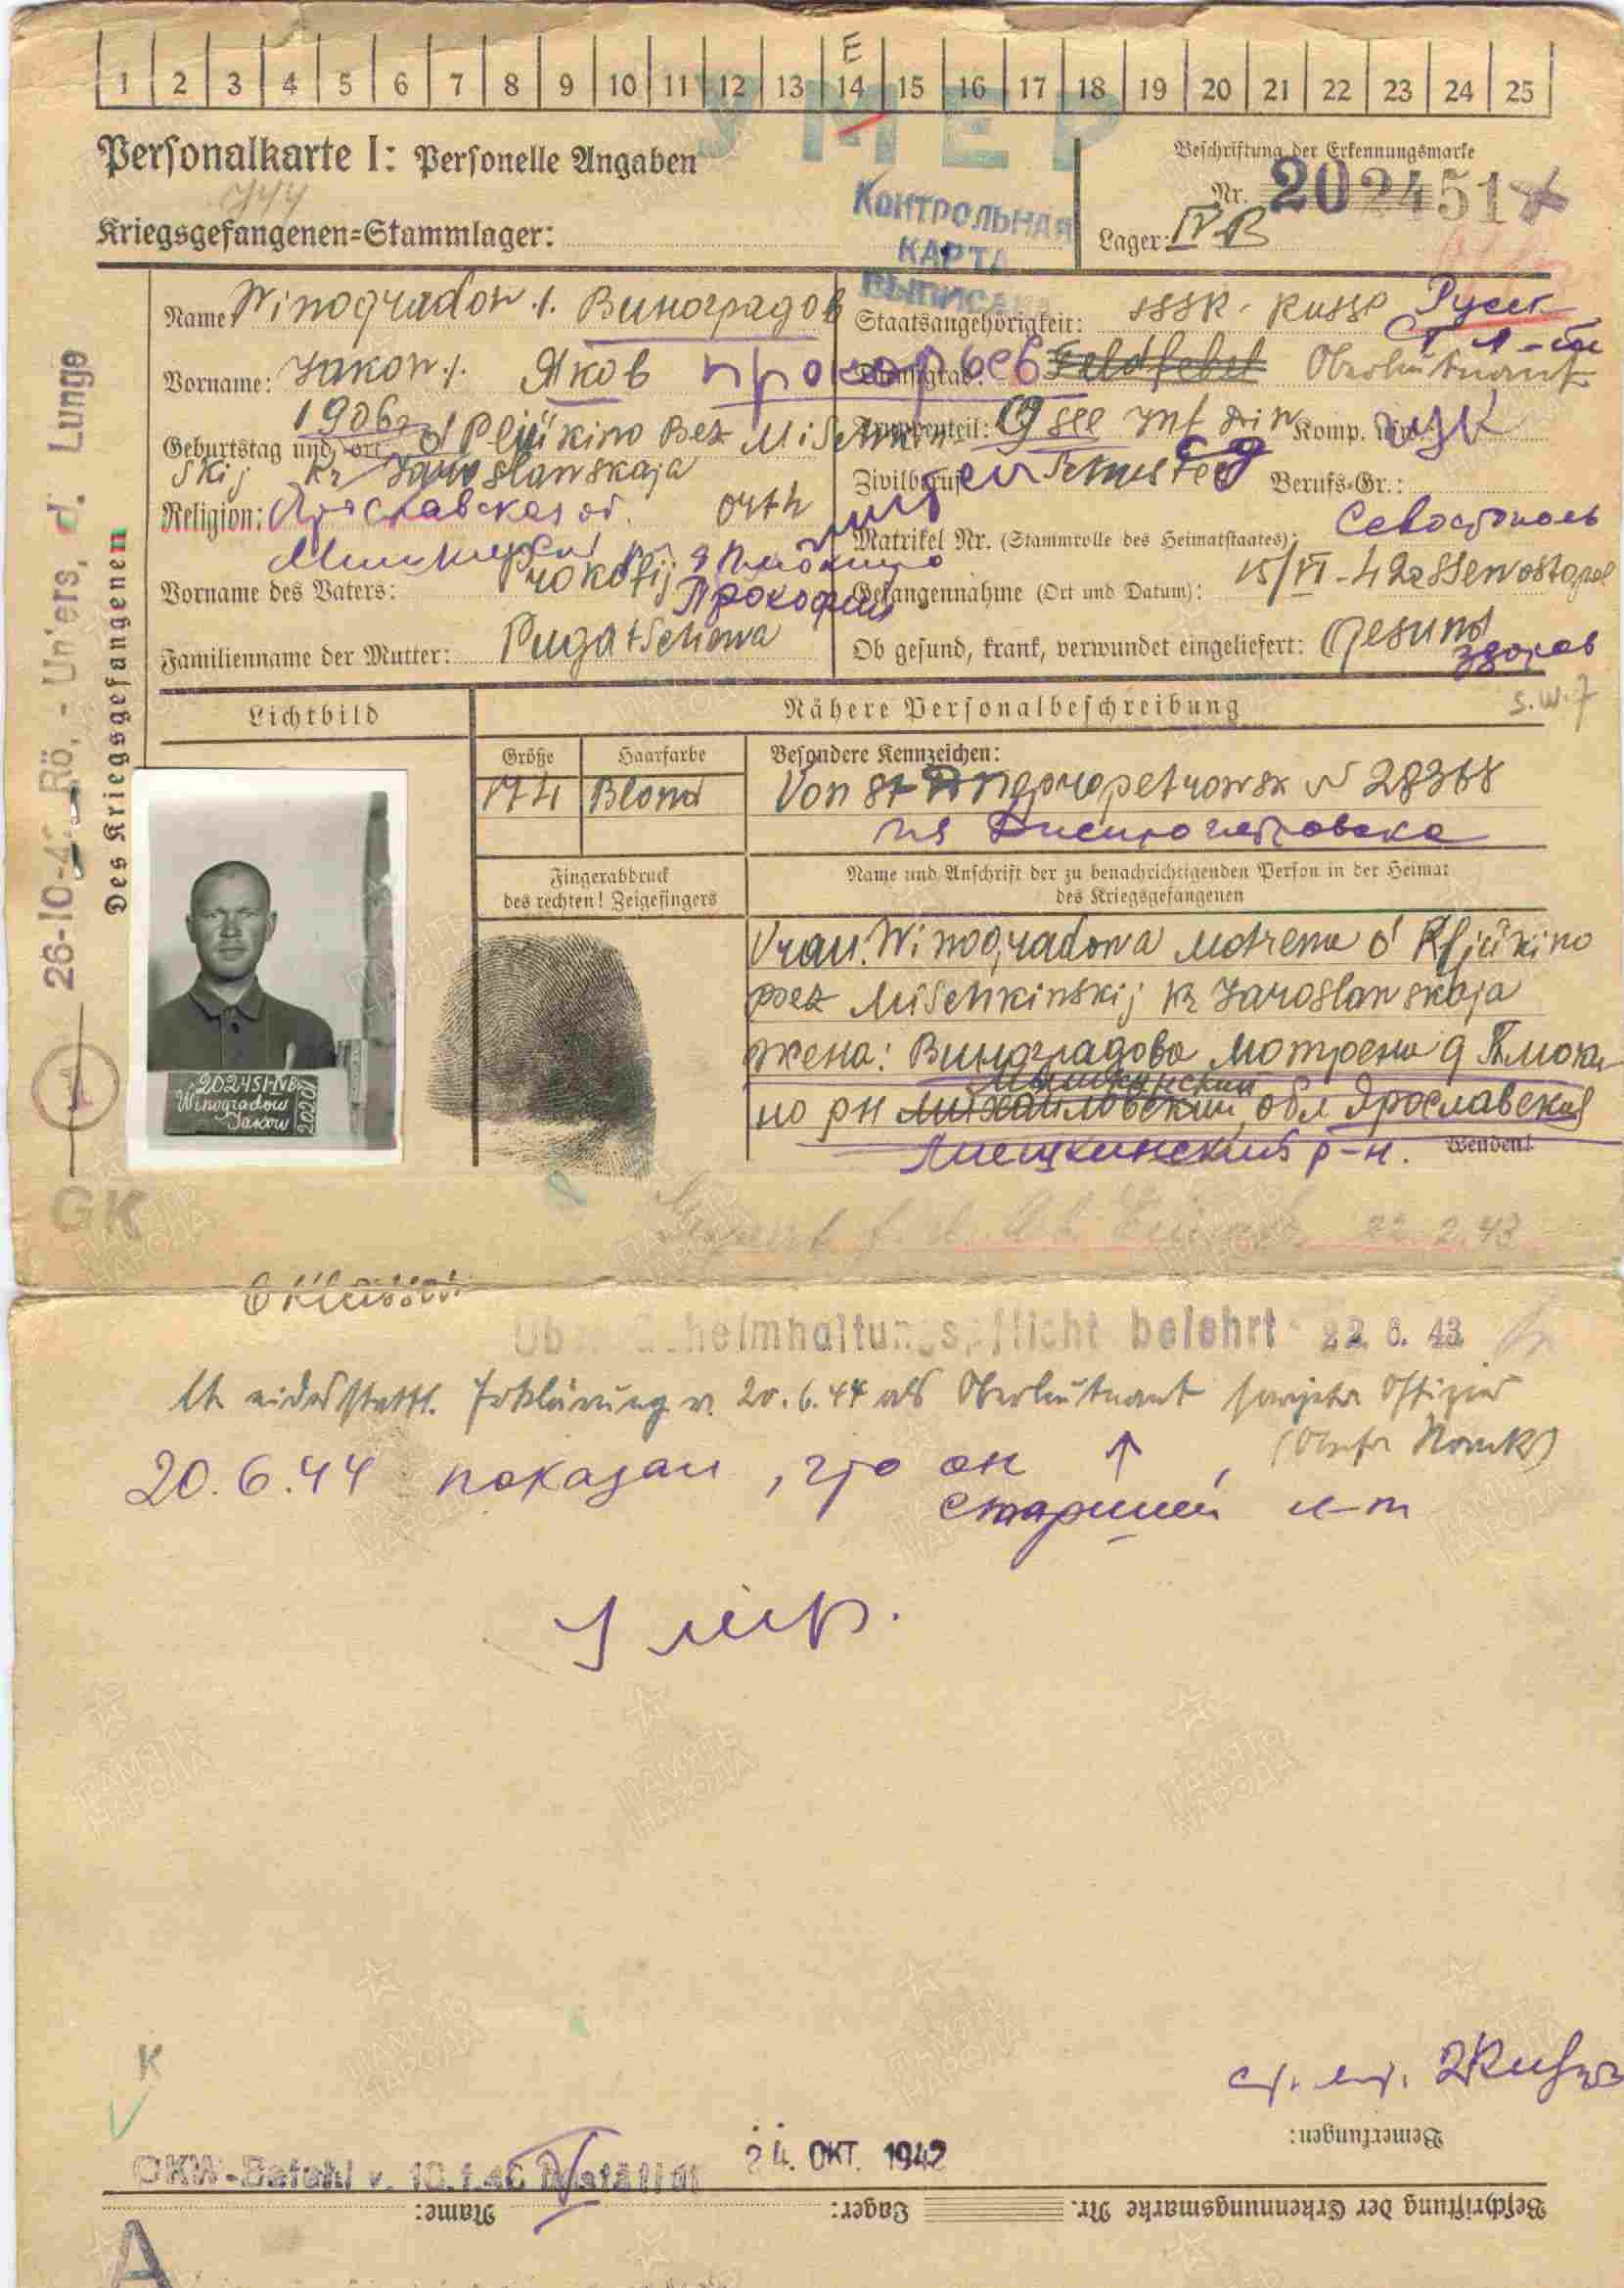 E
1 2 3 4 5 6 7 8 9 10 11 12 13 14 15 16 17 18 19 20 21 22 23 24 25
УМЕР
Personalkarte I: Personelle Angaben
Beschriftung der Erkennungsmarke
Nr. 202451
Kriegsgefangenen-Stammlager:
Lager: IV B
КОНТРОЛЬНАЯ
КАРТА
ВЫПИСАНА
Des Kriegsgefangenen
Name Winogradow Виноградов
Staatsangehörigkeit: SSSR. Russe Русск
Vorname: Jakow Яков Прокофьев
Dienstgrad: Feldfebel Oberleutnant
Geburtstag und -ort 1906 d Pljukino Bez Mischkin
skij Kr Jaroslawskaja
Truppenteil: 109 Inf Div Komp. usw.:
Zivilberuf: Berufs-Gr.:
Religion: Ярославская об. orth
Matrikel Nr. (Stammrolle des Heimatstaates):
Севастополь
Vorname des Vaters: Prokofij Прокофий
Gefangennahme (Ort und Datum): 15/VI-42 Sewostopol
Familienname der Mutter: Pugatschowa
Ob gesund, krank, verwundet eingeliefert: Gesund
здоров
S.W.7
Lichtbild
Nähere Personalbeschreibung
Größe Haarfarbe
Besondere Kennzeichen:
174 Blond
Von St Dnepropetrowsk N 28368
из Днепропетровска
Fingerabdruck
des rechten! Zeigefingers
Name und Anschrift der zu benachrichtigenden Person in der Heimat
des Kriegsgefangenen
Frau: Winogradowa Motrena d Kljukino
Bez Mischkinskij Kr Jaroslawskaja
жена: Виноградова Мотрена д
но рн Михайловский обл Ярославская
Мышкинский
Мешкинский р-н.
Wenden!
202451 IVB
Winogradow
Jakow
26-10-4 Rö.-Unters. d. Lunge
GK
22.2.43
Geheimhaltungspflicht belehrt 22.6.43
lt. eidesstattl. Erklärung v. 20.6.44 als Oberleutnant sowjet. Offizier
20.6.44 показал, что он
старший л-т
Умер.
K
Bemerkungen:
OKW-Befehl v. 10.1.
24. ОКТ. 1942
Name:
Lager:
Beschriftung der Erkennungsmarke Nr.
A